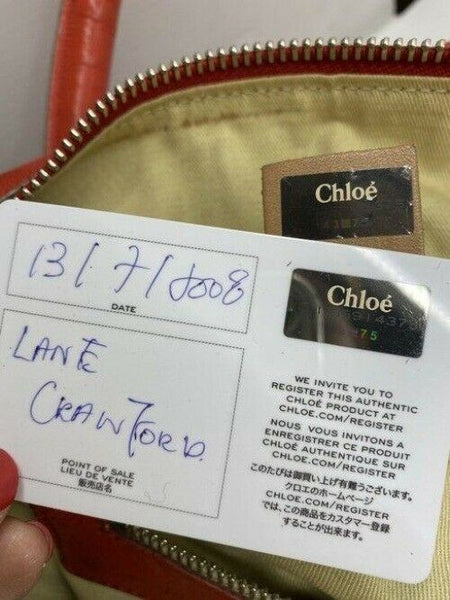 Chloé
13/7/2008
DATE
LANE
CRAWFORD
POINT OF SALE
LIEU DE VENTE
販売店名
Chloé
75
WE INVITE YOU TO
REGISTER THIS AUTHENTIC
CHLOÉ PRODUCT AT
CHLOE.COM/REGISTER
NOUS VOUS INVITONS A
ENREGISTRER CE PRODUIT
CHLOÉ AUTHENTIQUE SUR
CHLOE.COM/REGISTER
このたびは御買い上げ有難うございます。
クロエのホームページ
CHLOE.COM/REGISTER
では、この商品をカスタマー登録
することが出来ます。